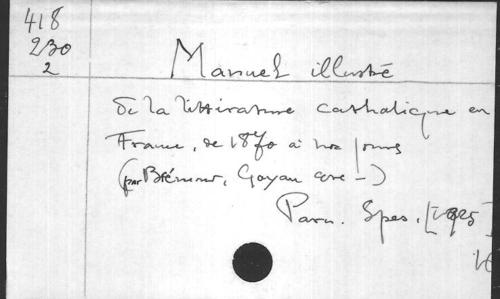 418
230
2
Manuel illustré
de la littérature catholique en
France, de 1870 à nos jours
(par Brémond, Goyau
Paris. Spes. [1925]